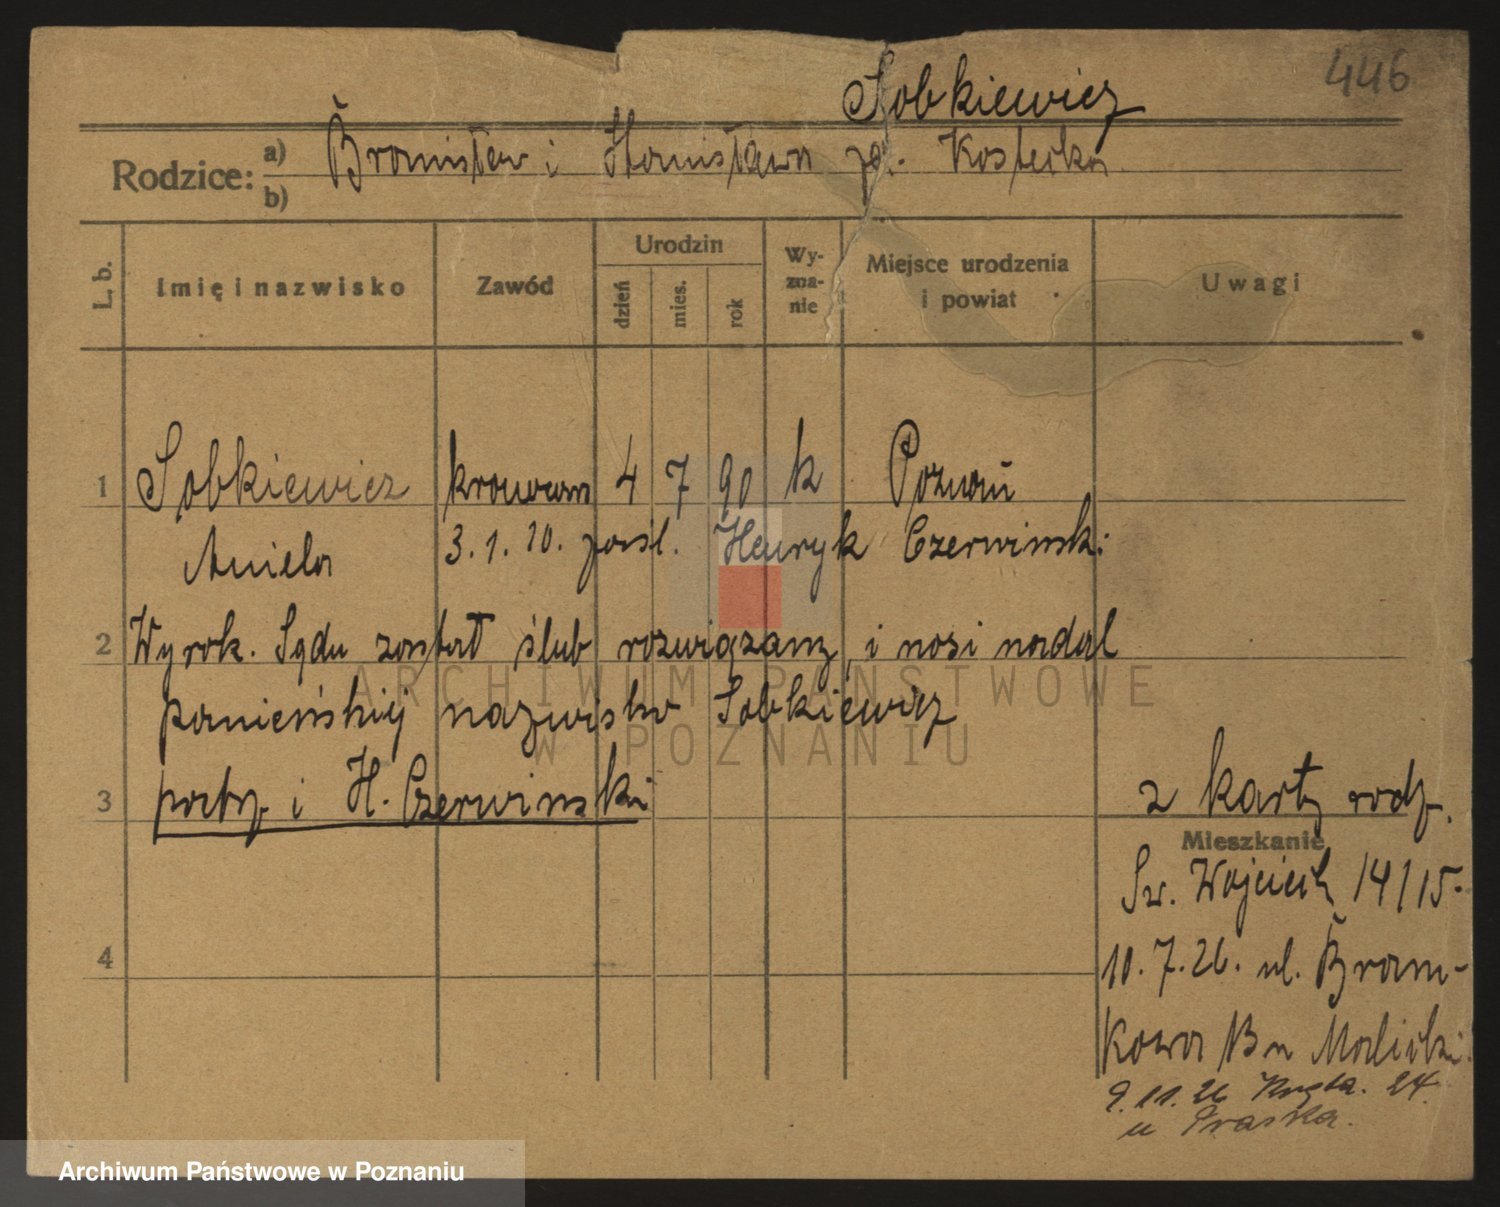 446
Sobkiewicz
Rodzice: a) Bronisław i Stanisława zd. Kostecka
b)
L. b. Imię i nazwisko Zawód Urodzin dzień mies. rok Wyznanie Miejsce urodzenia i powiat Uwagi
1 Sobkiewicz krawcowa 4 7 90 k Poznań
Aniela 3.1.20. pośl. Henryk Czerwiński
2 Wyrok. Sądu został ślub rozwiązany, i nosi nadal
panieńskij nazwisko Sobkiewicz
3 patrz i H. Czerwinski
z karty rodz.
Mieszkanie
Św. Wojciech 14/15.
4
10.7.26. ul. Bram-
kowa 13 u Malicki
9.11.26 24.
u Praska.
ARCHIWUM PAŃSTWOWE
W POZNANIU
Archiwum Państwowe w Poznaniu